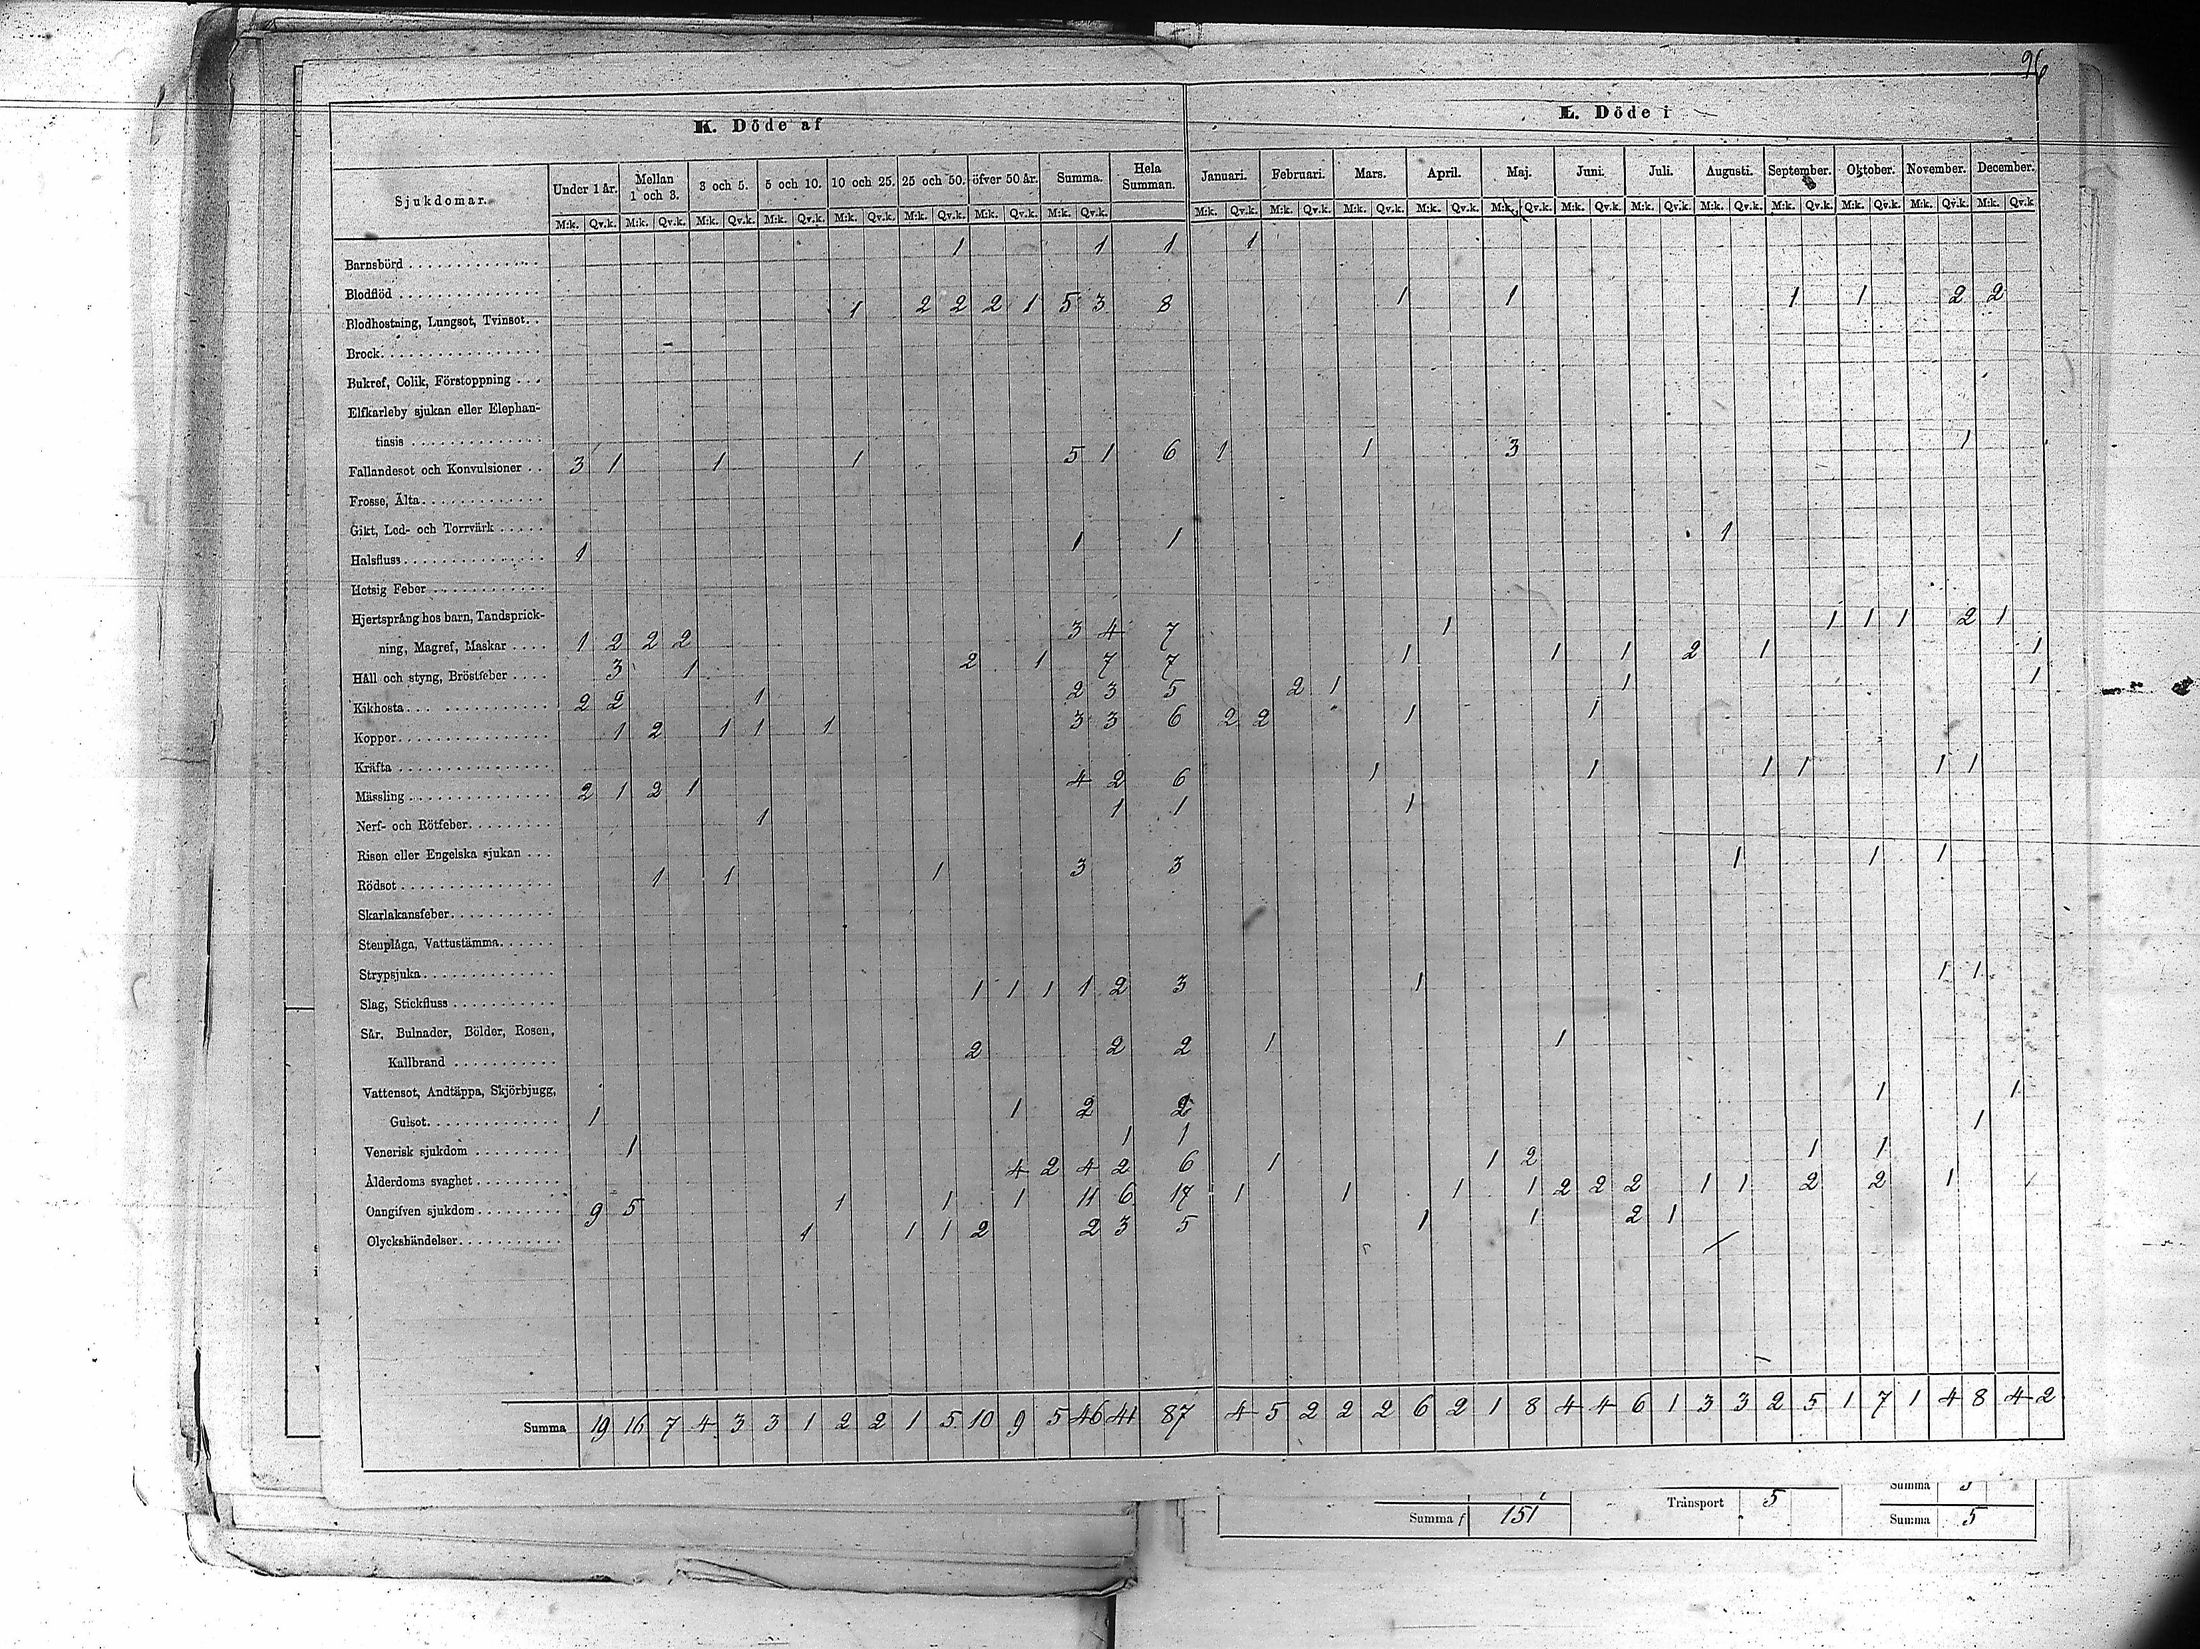 96
K. Döde af
L. Döde i
Sjukdomar. Under 1 år. Mellan 1 och 3. 3 och 5. 5 och 10. 10 och 25. 25 och 50. öfver 50 år. Summa. Hela Summan. Januari. Februari. Mars. April. Maj. Juni. Juli. Augusti. September. Oktober. November. December.
M:k. Qv.k. M:k. Qv.k. M:k. Qv.k. M:k. Qv.k. M:k. Qv.k. M:k. Qv.k. M:k. Qv.k. M:k. Qv.k. M:k. Qv.k. M:k. Qv.k. M:k. Qv.k. M:k. Qv.k. M:k. Qv.k. M:k. Qv.k. M:k. Qv.k. M:k. Qv.k. M:k. Qv.k. M:k. Qv.k. M:k. Qv.k. M:k. Qv.k
Barnsbörd 1 1 1 1
Blodflöd
Blodhostning, Lungsot, Tvinsot. 1 2 2 2 1 5 3 8 1 1 1 1 2 2
Brock
Bukref, Colik, Förstoppning
Elfkarleby sjukan eller Elephan-
tiasis
Fallandesot och Konvulsioner 3 1 1 1 5 1 6 1 1 3 1
Frosse, Älta
Gikt, Led- och Torrvärk
Halsfluss 1 1 1 1
Hetsig Feber
Hjertsprång hos barn, Tandsprick-
ning, Magref, Maskar 1 2 2 2 3 4 7 1 1 1 1 2 1
Håll och styng, Bröstfeber 3 1 2 1 7 7 1 1 1 2 1 1
Kikhosta 2 2 1 2 3 5 2 1 1 1
Koppor 1 2 1 1 1 3 3 6 2 2 1 1
Kräfta
Mässling 2 1 2 1 4 2 6 1 1 1 1 1 1
Nerf- och Rötfeber 1 1 1 1
Risen eller Engelska sjukan
Rödsot 1 1 1 3 3 1 1 1
Skarlakansfeber
Stenplåga, Vattustämma
Strypsjuka
Slag, Stickfluss 1 1 1 1 2 3 1 1 1
Sår, Bulnader, Bölder, Rosen,
Kallbrand 2 2 2 1 1
Vattensot, Andtäppa, Skjörbjugg,
Gulsot 1 1 2 2 1 1
Venerisk sjukdom 1 1 1 1
Ålderdoms svaghet 4 2 4 2 6 1 1 2 1 1
Oangifven sjukdom 9 5 1 1 1 11 6 17 1 1 1 1 2 2 2 1 1 2 2 1 1
Olyckshändelser 1 1 1 2 2 3 5 1 1 2 1
Summa 19 16 7 4 3 3 1 2 2 1 5 10 9 5 46 41 87 4 5 2 2 2 6 2 1 8 4 4 6 1 3 3 2 5 1 7 1 4 8 4 2
Transport 5 Summa
Summa f 151 Summa 5